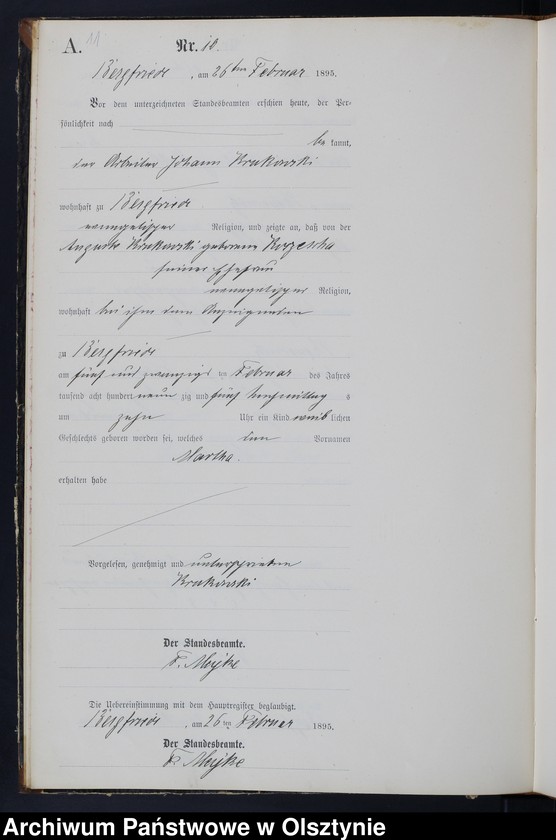 A. 11
Nr. 10.
Bergfriede, am 26ten Februar 1895.
Vor dem unterzeichneten Standesbeamten erschien heute, der Per-
sönlichkeit nach
be kannt,
der Arbeiter Johann Krukowski
wohnhaft zu Bergfriede
evangelischer Religion, und zeigte an, daß von der
Auguste Krukowski geborene
seiner Ehefrau
evangelischer Religion,
wohnhaft bei ihm dem Anzeigenden
zu Bergfriede
am fünf und zwanzigsten Februar des Jahres
tausend acht hundert neun zig und fünf Nachmittag s
um zehn Uhr ein Kind weib lichen
Geschlechts geboren worden sei, welches den Vornamen
Martha.
erhalten habe
Vorgelesen, genehmigt und unterschrieben
Krukowski
Der Standesbeamte.
Die Uebereinstimmung mit dem Hauptregister beglaubigt.
Bergfriede, am 26 ten Februar 1895.
Der Standesbeamte.
Archiwum Państwowe w Olsztynie